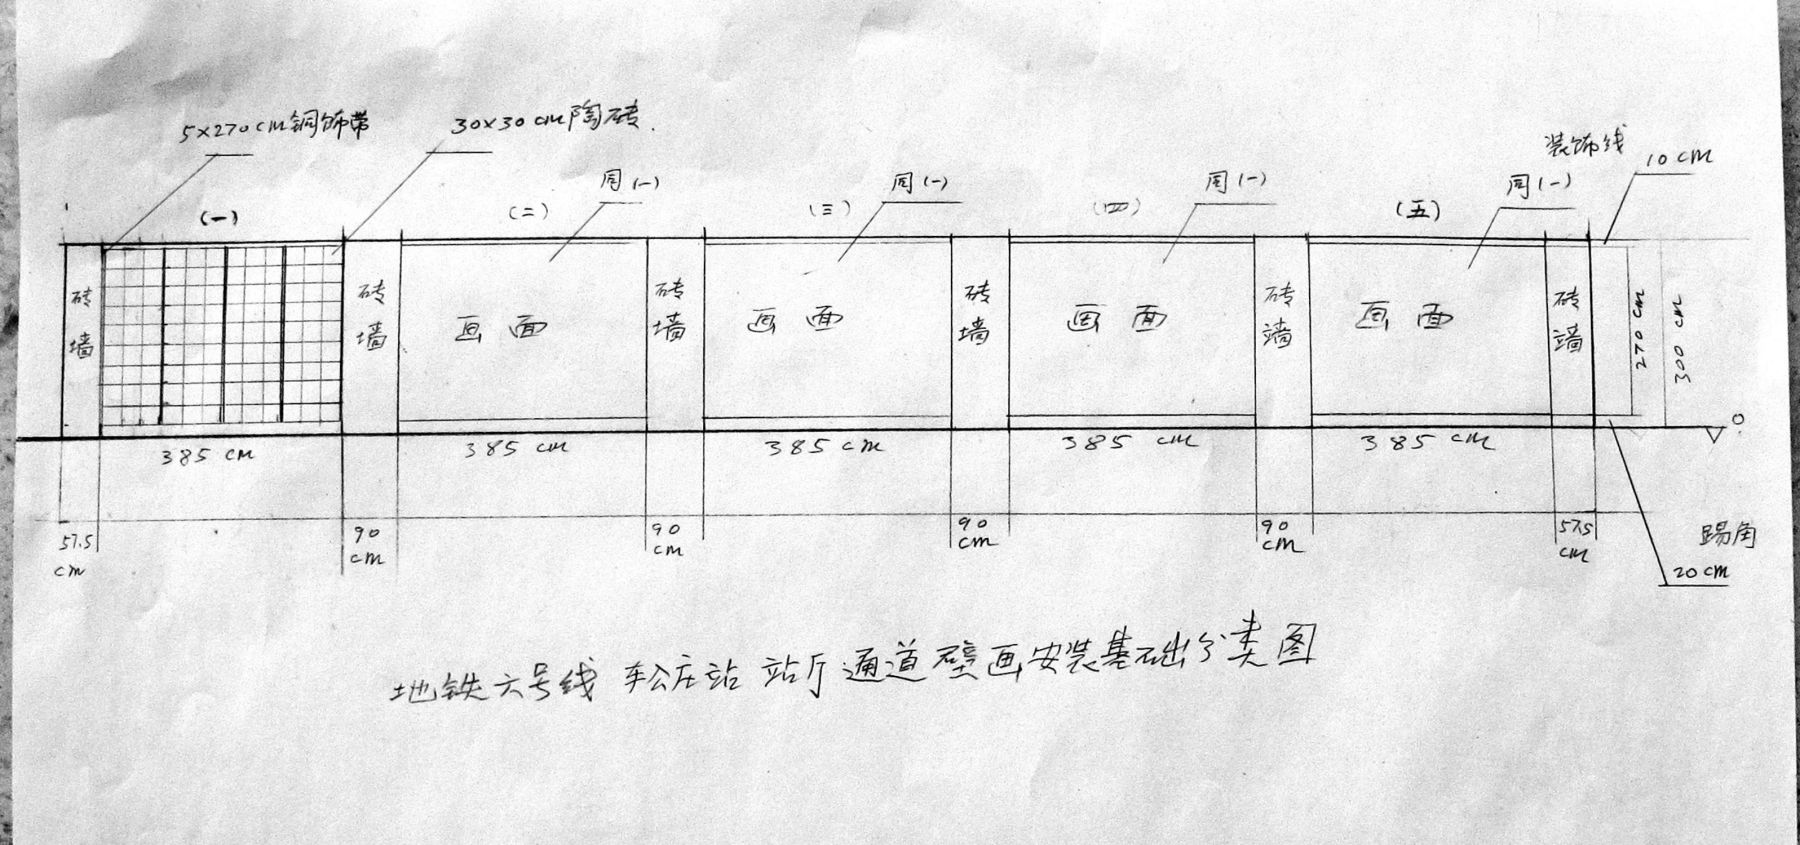 5×270cm铜饰带
30×30cm陶砖
装饰线
10cm
同(一)
同(一)
同(一)
同(一)
(一)
(二)
(三)
(四)
(五)
砖墙
砖墙
画面
砖墙
画面
砖墙
画面
砖墙
画面
砖墙
270cm
300cm
385cm
385cm
385cm
385cm
385cm
57.5cm
90cm
90cm
90cm
90cm
57.5cm
踢角
20cm
地铁六号线 车公庄站 站厅通道壁画安装基础分类图